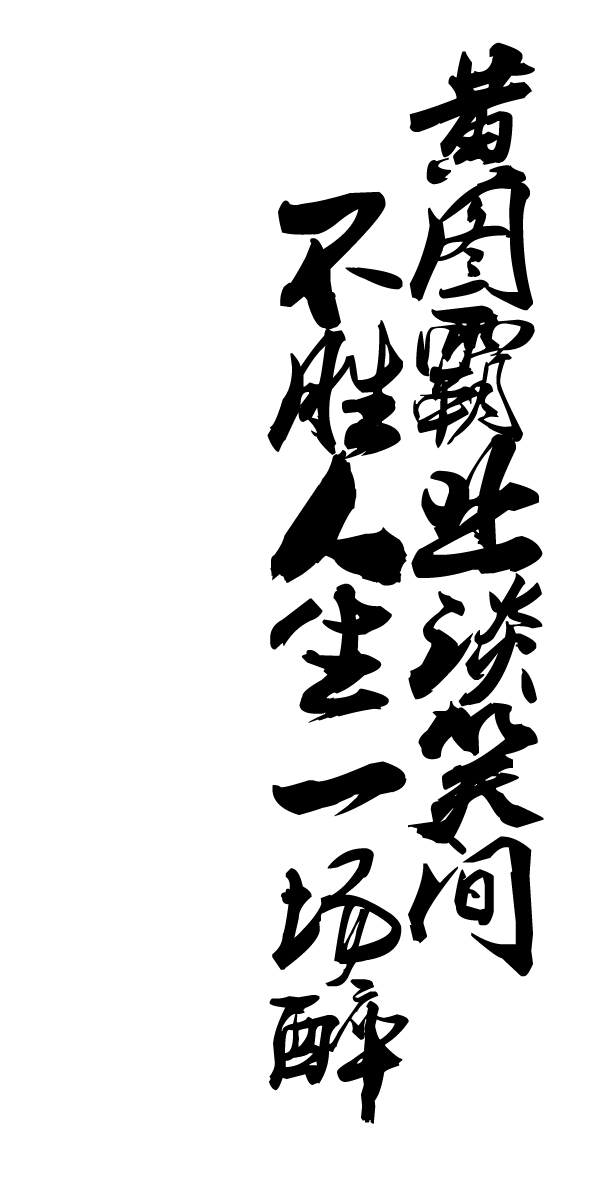 黄图霸业谈笑间
不胜人生一场醉